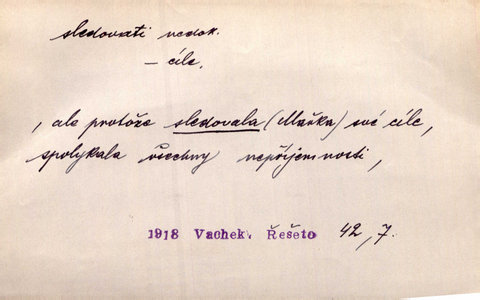 sledovati nedok.
– cíle.
, ale protože sledovala (Mařka) své cíle,
spolykala všechny nepříjemnosti,
1918 Vachek, Řešeto 42,7.